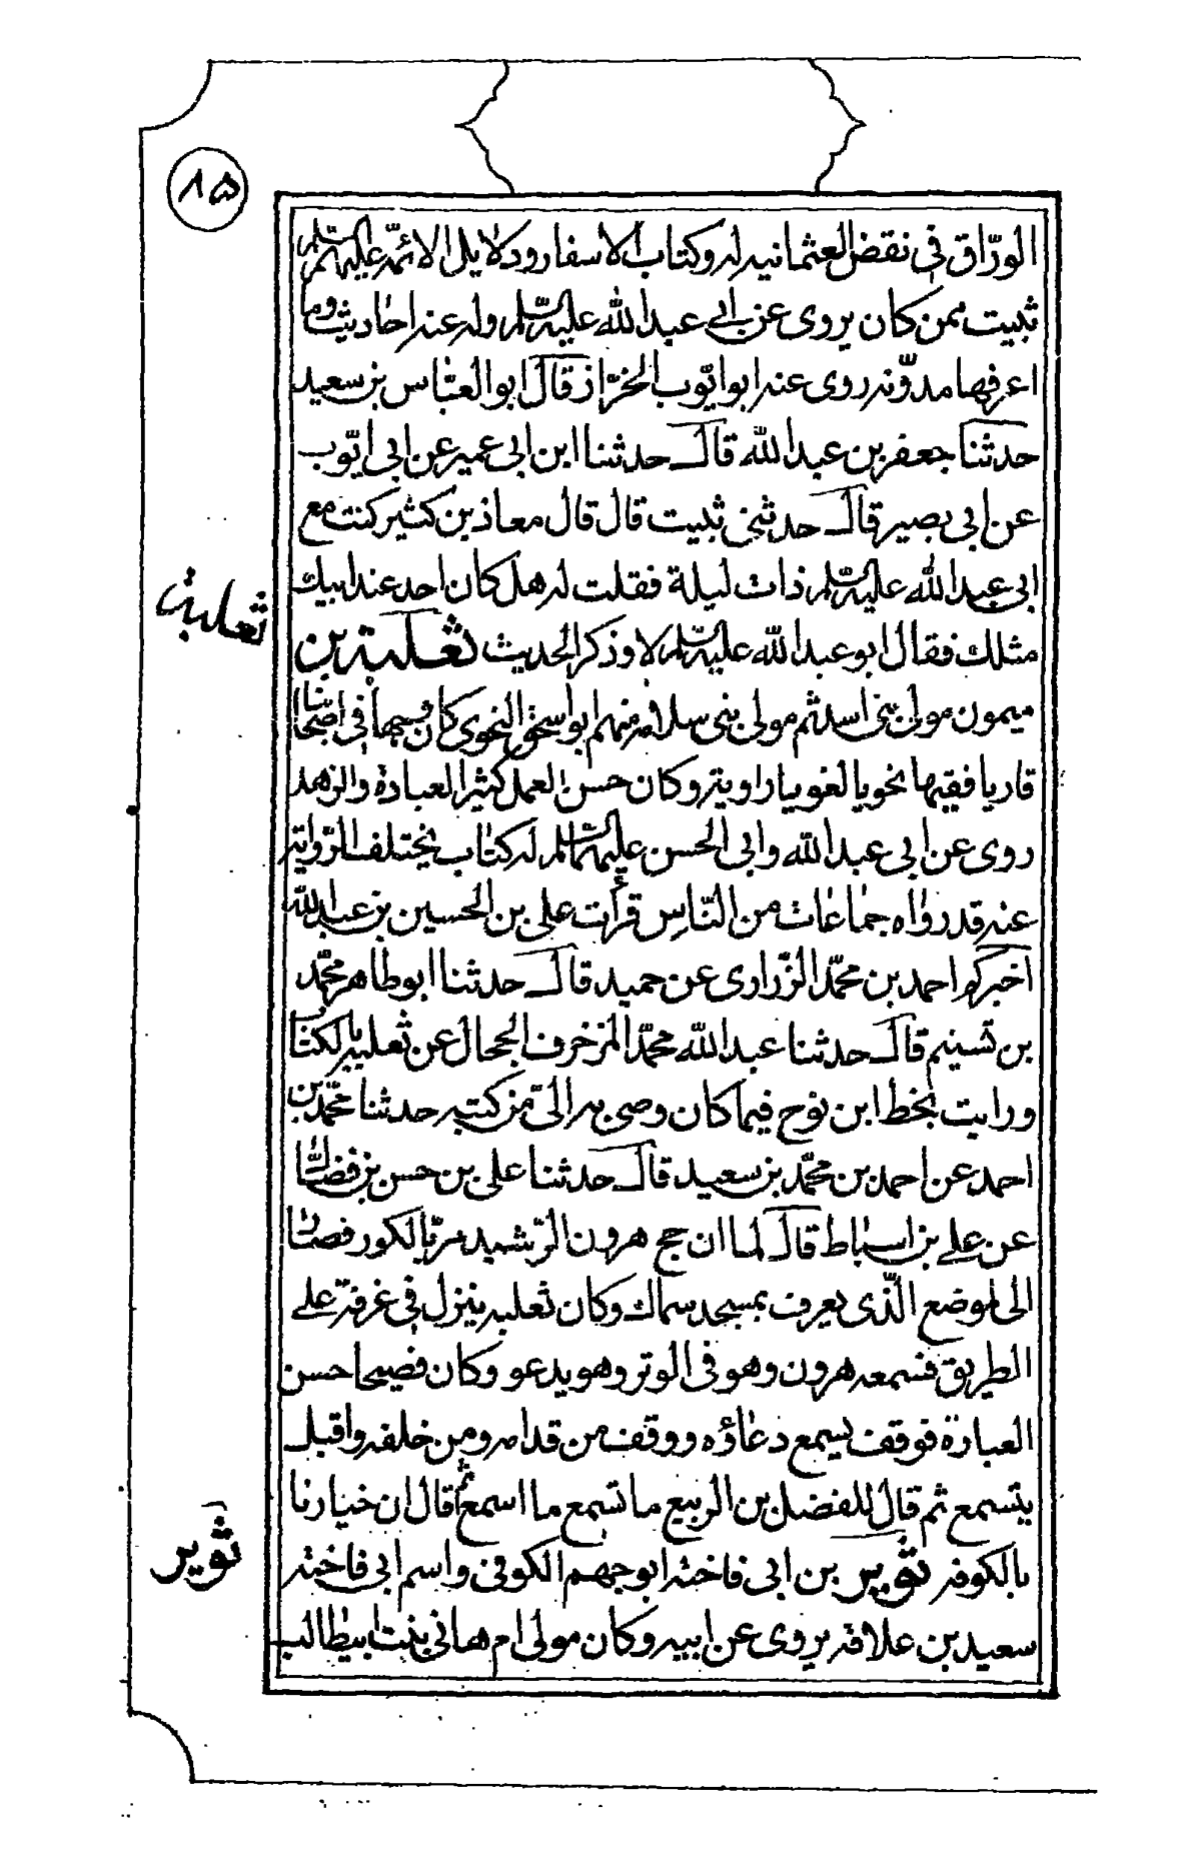 ٨٥
الورّاق في نقض العثمانيه له وكتاب الاسفار ودلايل الائمّة عليهم السّلم
ثبيت ممن كان يروى عن ابي عبد الله عليه السّلم وله عنه احاديث وما
اعرفها مدوّنه روى عنه ابو ايّوب الخرّاز قال ابو العبّاس بن سعيد
حدثنا جعفر بن عبد الله قال حدثنا ابن ابي عمير عن ابي ايّوب
عن ابي بصير قال حدثني ثبيت قال قال معاذ بن كثير كنت مع
ابي عبد الله عليه السّلم ذات ليلة فقلت له هل كان احد عند ابيك
مثلك فقال ابو عبد الله عليه السّلم لا وذكر الحديث ثعلبة بن
ثعلبة
ميمون مولى بني اسد ثم مولى بني سلامه منهم ابو اسحق النحوى كان وجها في اصحابنا
قاريا فقيها نحويا لغويا راويه وكان حسن العمل كثير العبادة والزهد
روى عن ابي عبد الله وابي الحسن عليهما السّلم له كتاب يختلف الرّوايه
عنه قد رواه جماعات من النّاس قرأت على بن الحسين بن عبيد الله
اخبركم احمد بن محمّد الزّرارى عن حميد قال حدثنا ابو طاهر محمّد
بن تسنيم قال حدثنا عبد الله محمّد المزخرف الحجال عن ثعلبه بالكتاب
ورايت بخط ابن نوح فيما كان وصى به الىّ من كتبه حدثنا محمّد بن
احمد عن احمد بن محمّد بن سعيد قال حدثنا على بن حسن بن فضال
عن على بن اسباط قال لما ان حج هرون الرّشيد مرّ بالكوفه فصار
الى الموضع الّذى يعرف بمسجد سماك وكان ثعلبه ينزل في غرفة على
الطريق فسمعه هرون وهو في الوتر وهو يدعو وكان فصيحا حسن
العبارة فوقف يسمع دعاؤه ووقف من قدامه ومن خلفه واقبل
يتسمع ثم قال للفضل بن الربيع ما تسمع ما اسمع ثم قال ان خيارنا
بالكوفه ثوير بن ابي فاخته ابو جهم الكوفي واسم ابي فاخته
ثوير
سعيد بن علاقه يروى عن ابيه وكان مولى ام هاني بنت ابيطالب